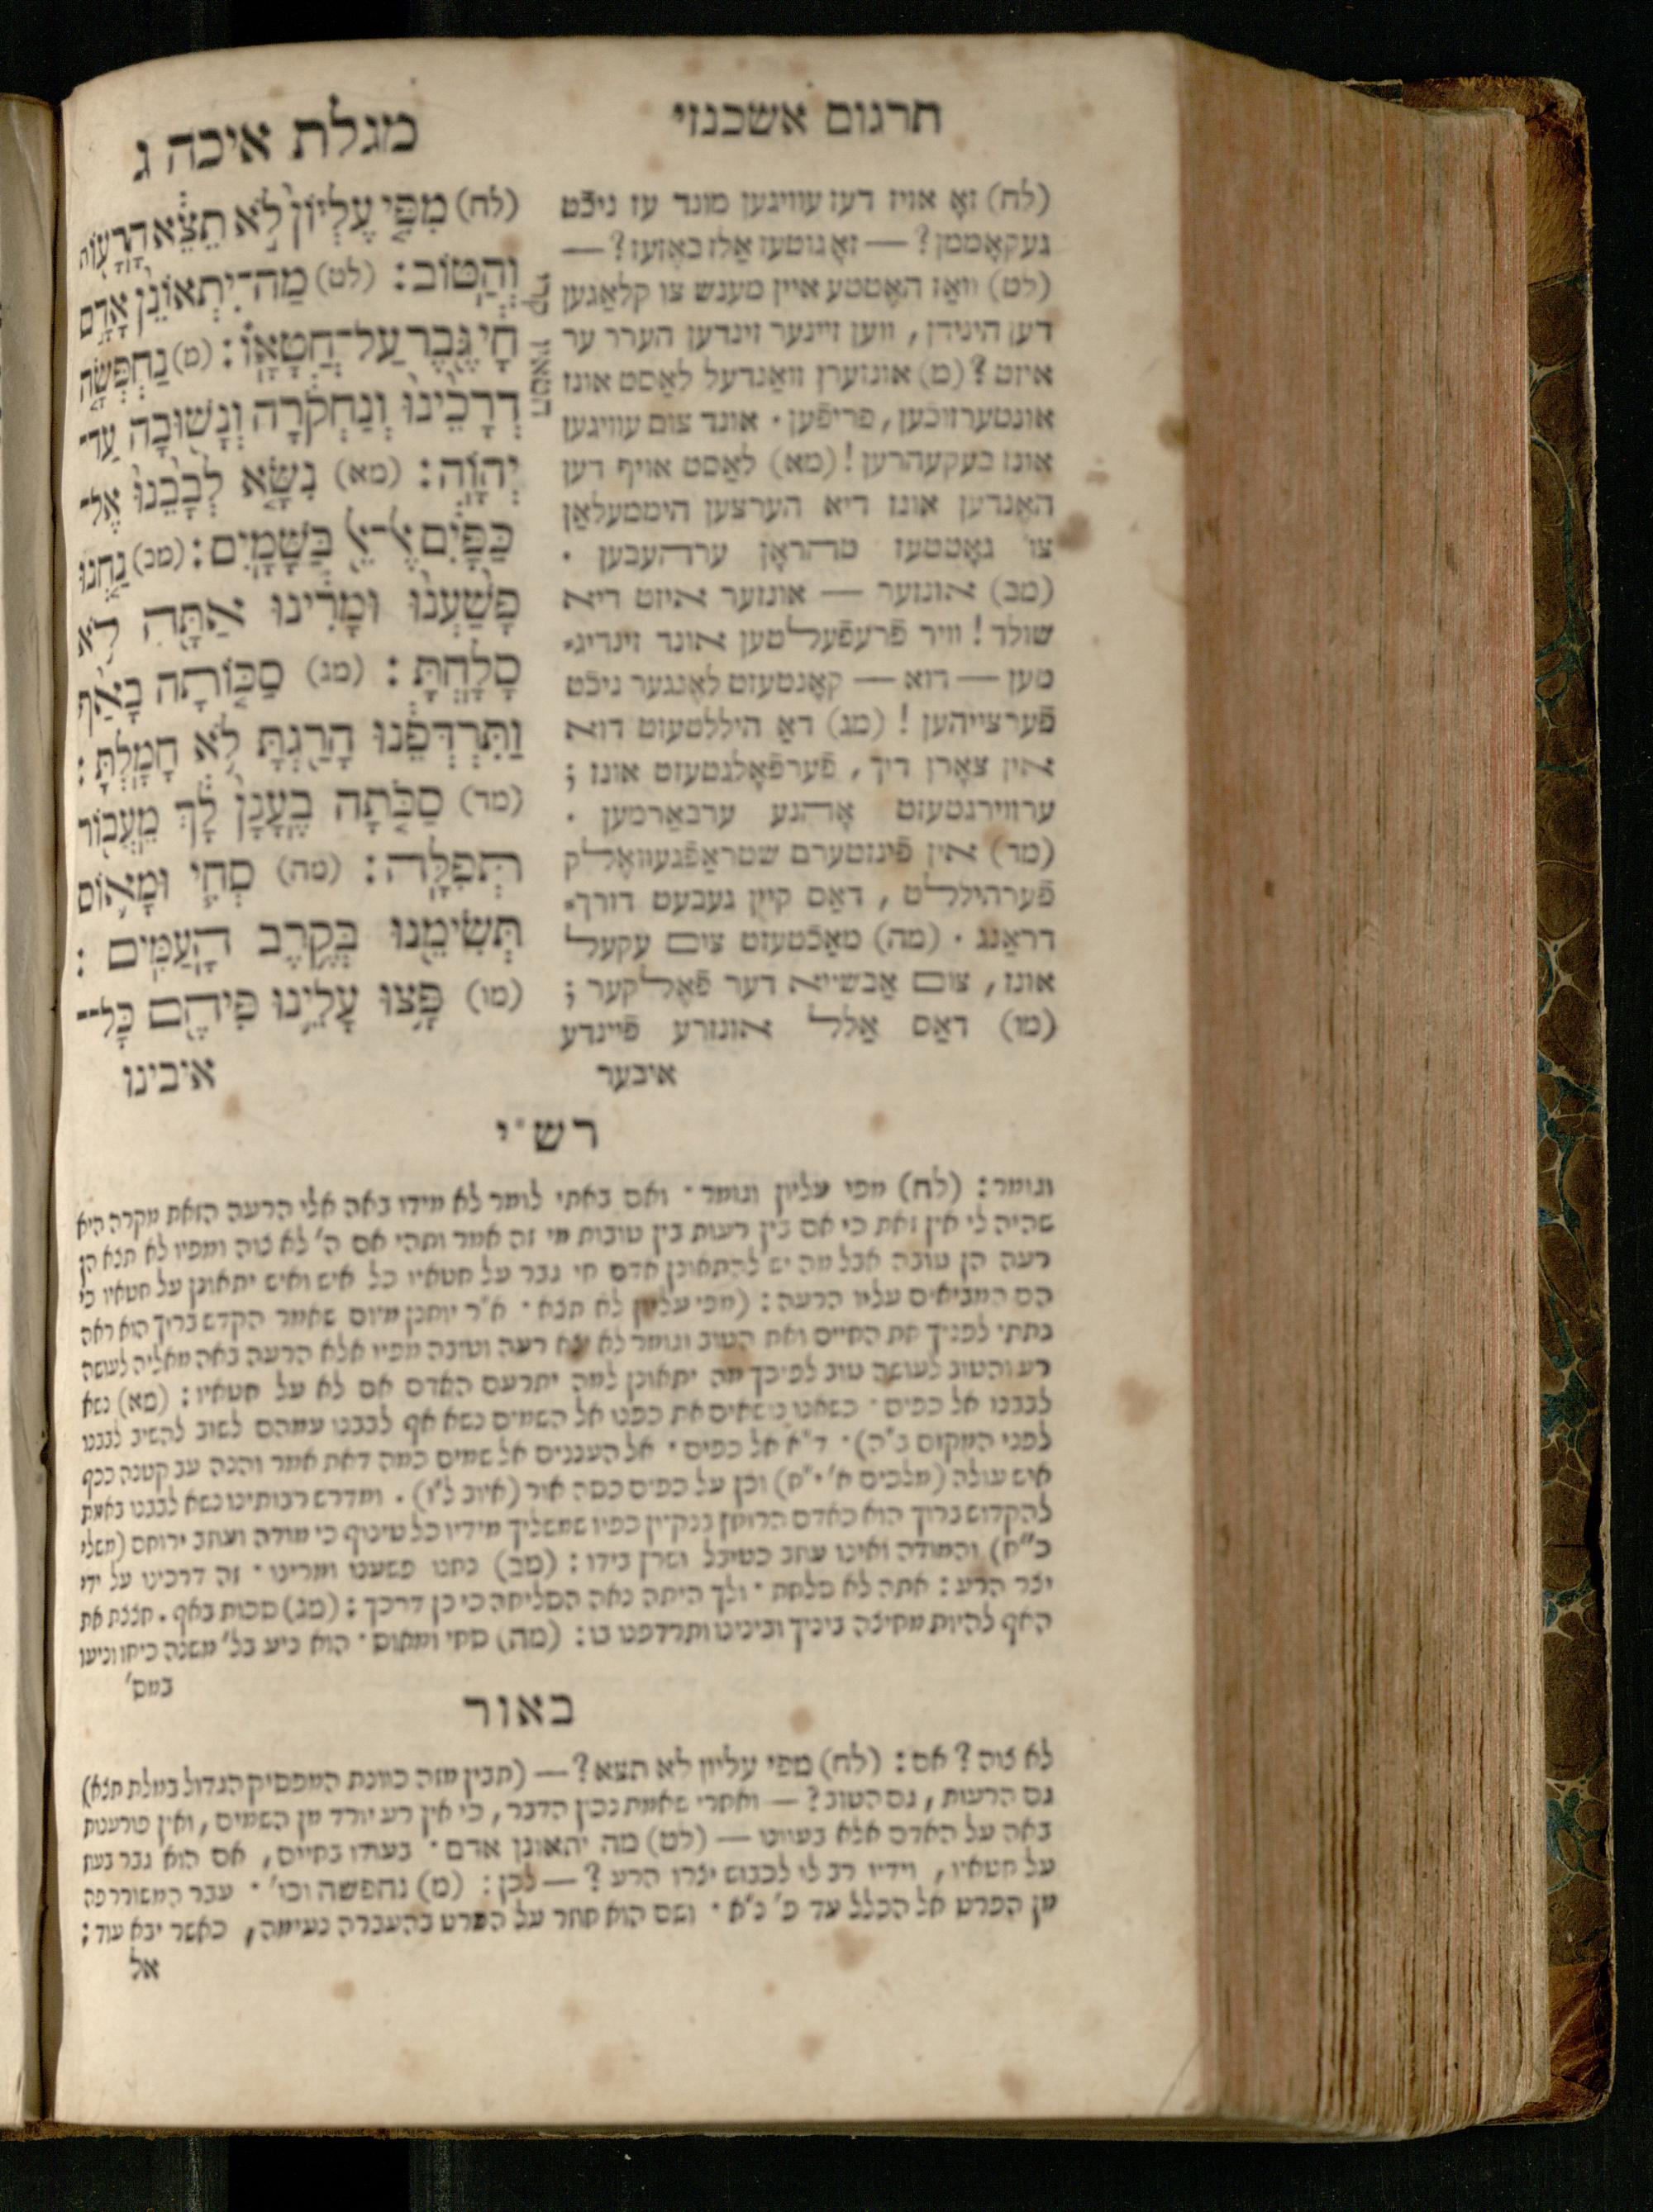 תרגום אשכנזי
(לח) זאָ אויז דעז עוויגען מונד עז ניכֿט
געקאָממן ? — זאָ גוטעז אַלז באָזעז ? —
(לט) וואַז האָטטע איין מענש צו קלאַגען
דען הינידן , ווען זיינער זינדען הערר ער
איזט ? (מ) אונזערן וואַנדעל לאַסט אונז
אונטערזוכֿען , פריפֿען . אונד צום עוויגען
אונז בעקעהרען ! (מא) לאַסט אויף דען
האָנדען אונז דיא הערצען הימטעלאַן
צו גאָטטעז טהראָן ערדהעבען .
(מב) אונזער — אונזער איזט דיא
שולד ! וויר פֿרעפֿעלטען אונד זינדיג־
טען — דוא — קאָנטעזט לאַנגער ניכֿט
פֿערצייהען ! (מג) דאַ היללטעזט דוא
אין צאָרן דיך , פֿערפֿאָלגטעזט אונז ;
ערווירגטעזט אָהנע ערבאַרמען .
(מד) אין פֿינזטערם שטראַפֿגעוואָלק
פֿערהיללט , דאַס קיין געבעט דורך־
דראַנג . (מה) מאַכֿטעזט צום עקעל
אונז , צום אַבשייא דער פֿאָלקער ;
(מו) דאַס אַלל אונזרע פֿיינדע
איבער
מגלת איכה ג
(לח) מִפִּ֤י עֶלְיוֹן֙ לֹ֣א תֵצֵ֔א הָרָע֖וֹת
וְהַטּֽוֹב׃ (לט) מַה־יִּתְאוֹנֵן֙ אָדָ֣ם
חָ֔י גֶּ֖בֶר עַל־חֲטָאָֽו׃ (מ) נַחְפְּשָׂ֤ה
דְרָכֵ֙ינוּ֙ וְֽנַחְקֹ֔רָה וְנָשׁ֖וּבָה עַד־
יְהוָֽה׃ (מא) נִשָּׂ֤א לְבָבֵ֙נוּ֙ אֶל־
כַּפָּ֔יִם אֶל־אֵ֖ל בַּשָּׁמָֽיִם׃ (מב) נַ֤חְנוּ
פָשַׁ֙עְנוּ֙ וּמָרִ֔ינוּ אַתָּ֖ה לֹ֥א
סָלָֽחְתָּ׃ (מג) סַכּ֤וֹתָה בָאַף֙
וַֽתִּרְדְּפֵ֔נוּ הָרַ֖גְתָּ לֹ֥א חָמָֽלְתָּ׃
(מד) סַכּ֤וֹתָה בֶֽעָנָן֙ לָ֔ךְ מֵעֲב֖וֹר
תְּפִלָּֽה׃ (מה) סְחִ֧י וּמָא֛וֹס
תְּשִׂימֵ֖נוּ בְּקֶ֥רֶב הָעַמִּֽים׃
(מו) פָּצ֥וּ עָלֵ֛ינוּ פִּיהֶ֖ם כָּל־
איבינו
רש״י
וגומר : (לח) מפי עליון וגומר ׳ ואם באתי לומר לא מידו באה אלי הרעה הזאת מקרה היא
שהיה לי אין זאת כי אם בין רעות בין טובות מי זה אמר ותהי אם ה׳ לא צוה ומפיו לא תצא הן
רעה הן טובה אבל מה יש להתאונן אדם חי גבר על חטאיו כל איש ואיש יתאונן על חטאיו כי
הם המביאים עליו הרעה : (מפי עליון לא תצא ׳ א״ר יוחנן מיום שאמר הקדש ברוך הוא ראה
נתתי לפניך את החיים ואת הטוב וגומר לא יצא רעה וטובה מפיו אלא הרעה באה מאליה לעושה
רע והטוב לעושה טוב לפיכך מה יתאונן למה יתרעם האדם אם לא על חטאיו : (מא) נשא
לבבנו אל כפים ׳ כשאנו נושאים את כפנו אל השמים נשא אף לבבנו עמהם לשוב להשיב לבבנו
לפני המקום ב״ה) ׳ ד״א אל כפים ׳ אל העננים אל שמים כמה דאת אמר והנה עב קטנה ככף
איש עולה (מלכים א׳ י״ח) וכן על כפים כסה אור (איוב ל״ו) . ומדרש רבותינו נשא לבבנו באמת
להקדוש ברוך הוא כאדם הרוחץ בנקיון כפיו שמשליך מידיו כל טינוף כי מודה ועוזב ירוחם (משלי
כ״ח) והמודה ואינו עוזב כטובל ושרץ בידו : (מב) נחנו פשענו ומרינו ׳ זה דרכינו על ידי
יצר הרע : אתה לא סלחת ׳ ולך היתה נאה הסליחה כי כן דרכך : (מג) סכות באף . חצצת את
האף להיות מחיצה ביניך ובינינו ותרדפנו בו : (מה) סחי ומאוס ׳ הוא ניע בל׳ משנה כיחו וניעו
במס׳
באור
לא צוה ? אם : (לח) מפי עליון לא תצא ? — (תבין מזה כוונת המפסיק הגדול במלת תצא)
גם הרעות , גם הטוב ? — ואחרי שאמת נכון הדבר , כי אין רע יורד מן השמים , ואין פורענות
באה על האדם אלא בעוונו — (לט) מה יתאונן אדם ׳ בעודו בחיים , אם הוא גבר בעת
על חטאיו , וידיו רב לו לכבוש יצרו הרע ? — לכן : (מ) נחפשה וכו׳ ׳ עבר המשורר פה
מן הפרט אל הכלל עד פ׳ נ״א ׳ ושם הוא חוזר על הפרט בהעברה נעימה , כאשר יבא עוד :
אל